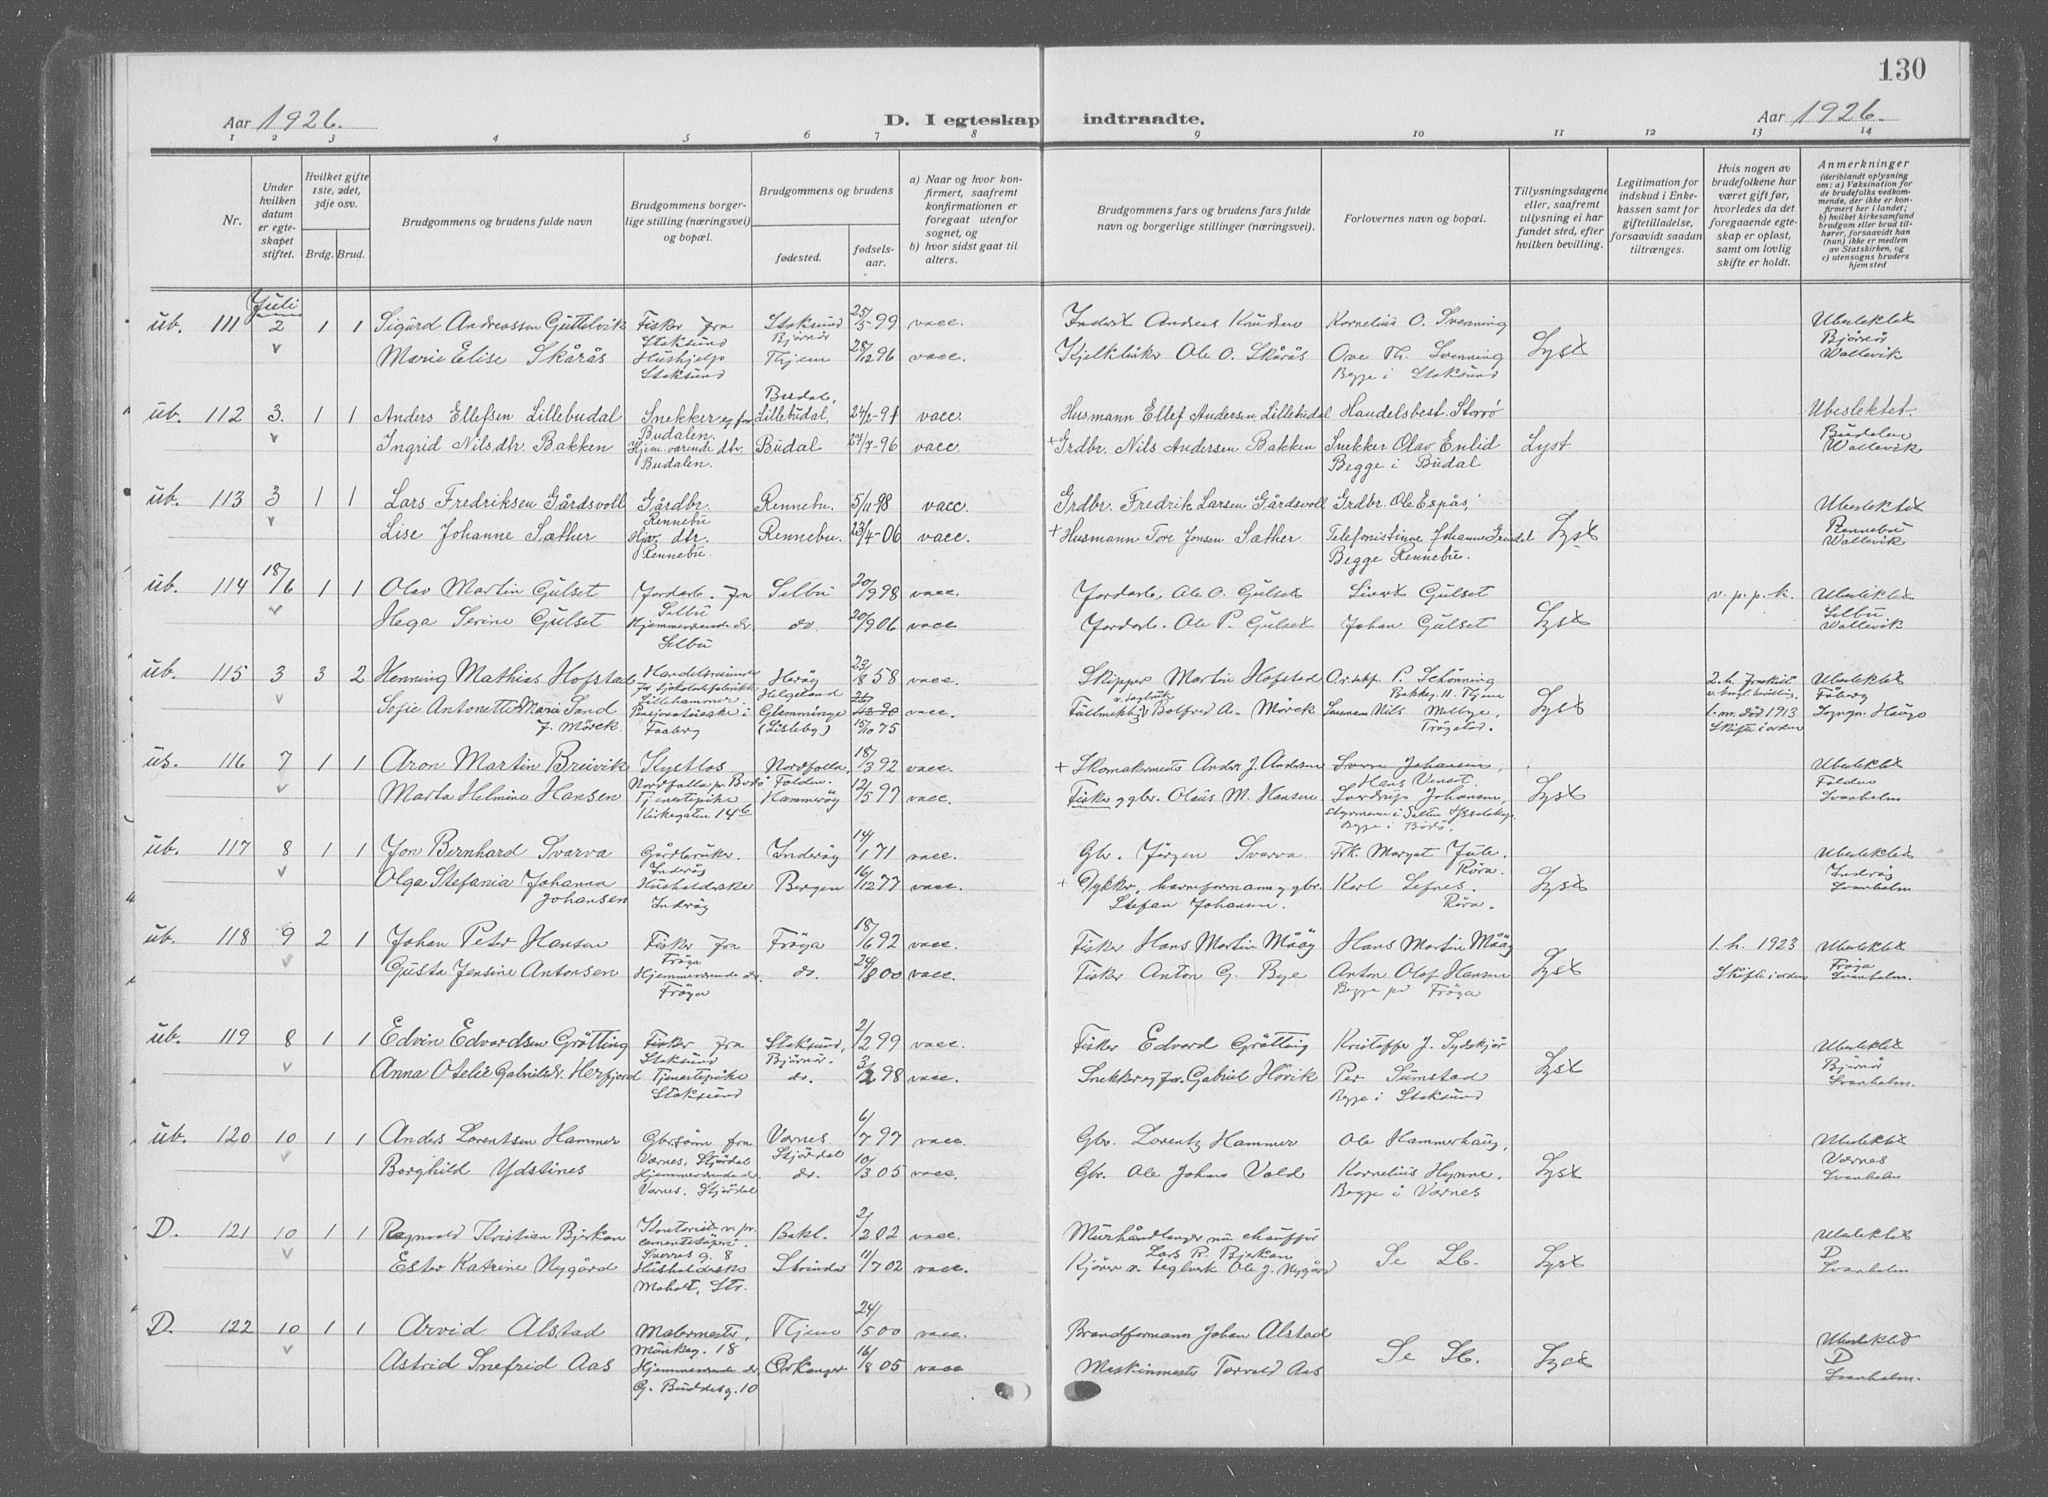 130
Aar 1926.
D. I egteskap indtraadte.
Aar 1926.
1 2 3 4 5 6 7 8 9 10 11 12 13 14
Nr.
Under hvilken datum er egteskapet stiftet.
Hvilket gifte 1ste, 2det, 3dje osv.
Brdg. Brud.
Brudgommens og brudens fulde navn
Brudgommens borgerlige stilling (næringsvei) og bopæl.
Brudgommens og brudens
fødested.
fødselsaar.
a) Naar og hvor konfirmert, saafremt konfirmationen er foregaat utenfor sognet, og
b) hvor sidst gaat til alters.
Brudgommens fars og brudens fars fulde navn og borgerlige stillinger (næringsvei).
Forlovernes navn og bopæl.
Tillysningsdagene eller, saafremt tillysning ei har fundet sted, efter hvilken bevilling.
Legitimation for indskud i Enkekassen samt for giftetilladelse, forsaavidt saadan tiltrænges.
Hvis nogen av brudefolkene har været gift før, hvorledes da det foregaaende egteskap er opløst, samt om lovlig skifte er holdt.
Anmerkninger (deriblandt oplysning om: a) Vaksination for de brudefolks vedkommende, der ikke er konfirmert her i landet; b) hvilket kirkesamfund brudgom eller brud tilhører, forsaavidt han (hun) ikke er medlem av Statskirken, og c) utensogns bruders hjemsted
Juli
ub. 111 2 1 1 Sigurd Andreassen Guttelvik Fisker fra Stoksund Stoksund Bjørnør 25/5-99 vacc. Inderst Andreas Knudsen Kornelius O. Svenning Ubeslektet
Marie Elise Skårås Hushjelp Stoksund Thjem 28/12 96 vacc. Ole O. Skårås Ove Th. Svenning Begge i Stoksund Lyst Bjørnør Wallevik
ub. 112 3. 1 1 Anders Ellefsen Lillebudal Snekker og for Budalen. Budal, Lillebudal, 24/2-91 vacc. Husmann Ellef Andersen Lillebudal Handelsbest. Storrø Ubeslektet.
Ingrid Nilsdtr. Bakken Hjem.værende dtr. Budalen. Budal 27/7-96 vacc. + Grdbr. Nils Andersen Bakken Snekker Olav Enlid Begge i Budal Lyst Budalen Wallevik
ub. 113 3 1 1 Lars Fredriksen Gårdsvoll Gårdbr. Rennebu Rennebu. 5/11-98 vacc. Grdbr. Fredrik Larsen Gårdsvoll Grdbr. Ole Espås, Ubeslektet
Lise Johanne Sæther Hjv. dtr. Rennebu Rennebu. 23/4-06 vacc. + Husmann Tore Jonsen Sæther Telefonistinne Johanne Begge Rennebu. Lyst Rennebu Wallevik
ub. 114 18/6 1 1 Olav Martin Gulset Jordarb. fra Selbu Selbu 20/9 98 vacc. Jordarb. Ole O. Gulset Sivert Gulset v. p. p. k. Ubeslektet
Hega Serine Gulset Hjemmeværende dr. Selbu do. 20/9 06 vacc Jordarb. Ole P. Gulset Johan Gulset Lyst Selbu Wallevik
ub. 115 3 3 2 Henning Mathias Hofstad Handelsreisende for sjokoladefabrikk Lillehammer Herøy Helgeland 23/8 58 vacc. Skipper Martin Hofstad O.r.skf. P. Schönning Bakkeg. 11. Thjem Ubeslektet
Sofie Antonette Marie Sand f. Mörck i Faaberg Glemminge (Lisleby) 15/10 75 vacc. Bolfred A. Mörck Nils Melbye. Trögstad. Lyst 1. m. död 1913 Skifte i orden Fåberg Sogngr. Haugo
ub. 116 7 1 1 Aron Martin Breivik Nordfolla pr. Bodø Nordfolla, Folden. 18/3 92 vacc. + Skomakermester Anders J. Andersen Sverre Johansen, Ubeslektet
Marta Helmine Hansen Tjenestepike Kirkegaten 14b Hammerøy 12/5 97 vacc. Fisker og gbr. Olaus M. Hansen Sverdrup Johansen, Begge i Bodø. Lyst Folden Svanholm
ub. 117 8 1 1 Jon Bernhard Svarva Gårdbruker. Inderøy Inderøy 14/1 71 vacc. Gbr. Jørgen Svarva Frk. Margot Jule. Röra. Ubeslektet
Olga Stefania Johanna Johansen Husholderske Inderøy Bergen 16/12 77 vacc. + Dykker, havneformann og gbr. Stefan Johansen. Karl Lefnes. Röra. Lyst Inderøy Svanholm
ub. 118 9 2 1 Johan Peter Hansen Fisker fra Frøya Frøya 18/6 92 vacc. Fisker Hans Martin Måøy Hans Martin Måøy 1. h. 1923 Ubeslektet
Gusta Jensine Antonsen Hjemmeværende dr. Frøya do. 24/8 00 vacc. Fisker Anton G. Bye Anton Olaf Hansen Begge på Frøya Lyst Skifte i orden Frøya Svanholm.
ub. 119 8 1 1 Edvin Edvardsen Grøtting Fisker fra Stoksund Stoksund, Bjørnør. 2/2 99 vacc. Fisker Edvard Grøtting Kristoffer J. Sydskjør Ubeslektet
Anna Otelie Gabrielsdr. Herfjord Tjenestepike Stoksund do. 3/2 98 vacc. Snekker og for. Gabriel Hovik Per Sumstad Begge i Stoksund Lyst Bjørnør Svanholm.
ub. 120 10 1 1 Anders Lorentsen Hammer Gbrsønn fra Værnes. Stjørdal Værnes Stjørdal 6/7 97 vacc. Gbr. Lorentz Hammer Ole Hammerhaug, Ubeslektet
Borghild Ydstines Hjemmeværende dr. Værnes. Stjørdal do. 10/3 05 vacc. Gbr. Ole Johans Vold Kornelius Hynne. Begge i Værnes Lyst Værnes Svanholm.
D. 121 10 1 1 Ragnvald Kristian Bjerkan Kontorist v. pr. cementstøperi. Sverres g. 8 Bakl. 2/2 02 vacc. Murhåndlanger nu chauffør Lars R. Bjerkan Ubeslektet
Ester Katrine Nygård Husholderske Moholt, Str. Strinda 11/7 02 vacc. Kjører v. teglverk Ole J. Nygård Se Lb. Lyst D Svanholm
D. 122 10 1 1 Arvid Alstad Malermester, Munkeg. 18 Thjem 24/5 00 vacc. Brandformann Johan Alstad Ubeslektet
Astrid Snefrid Aas Hjemmeværende dr. G. Buddesg. 10 Orkanger 16/8 05 vacc Maskinmester Torvald Aas Se Lb. Lyst D Svanholm.